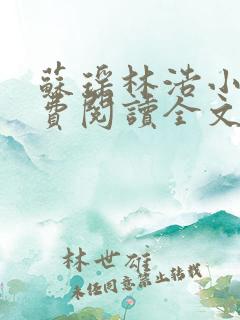 蘇瑤林浩小
費閱讀全文
林世雄
未经同意禁止转载